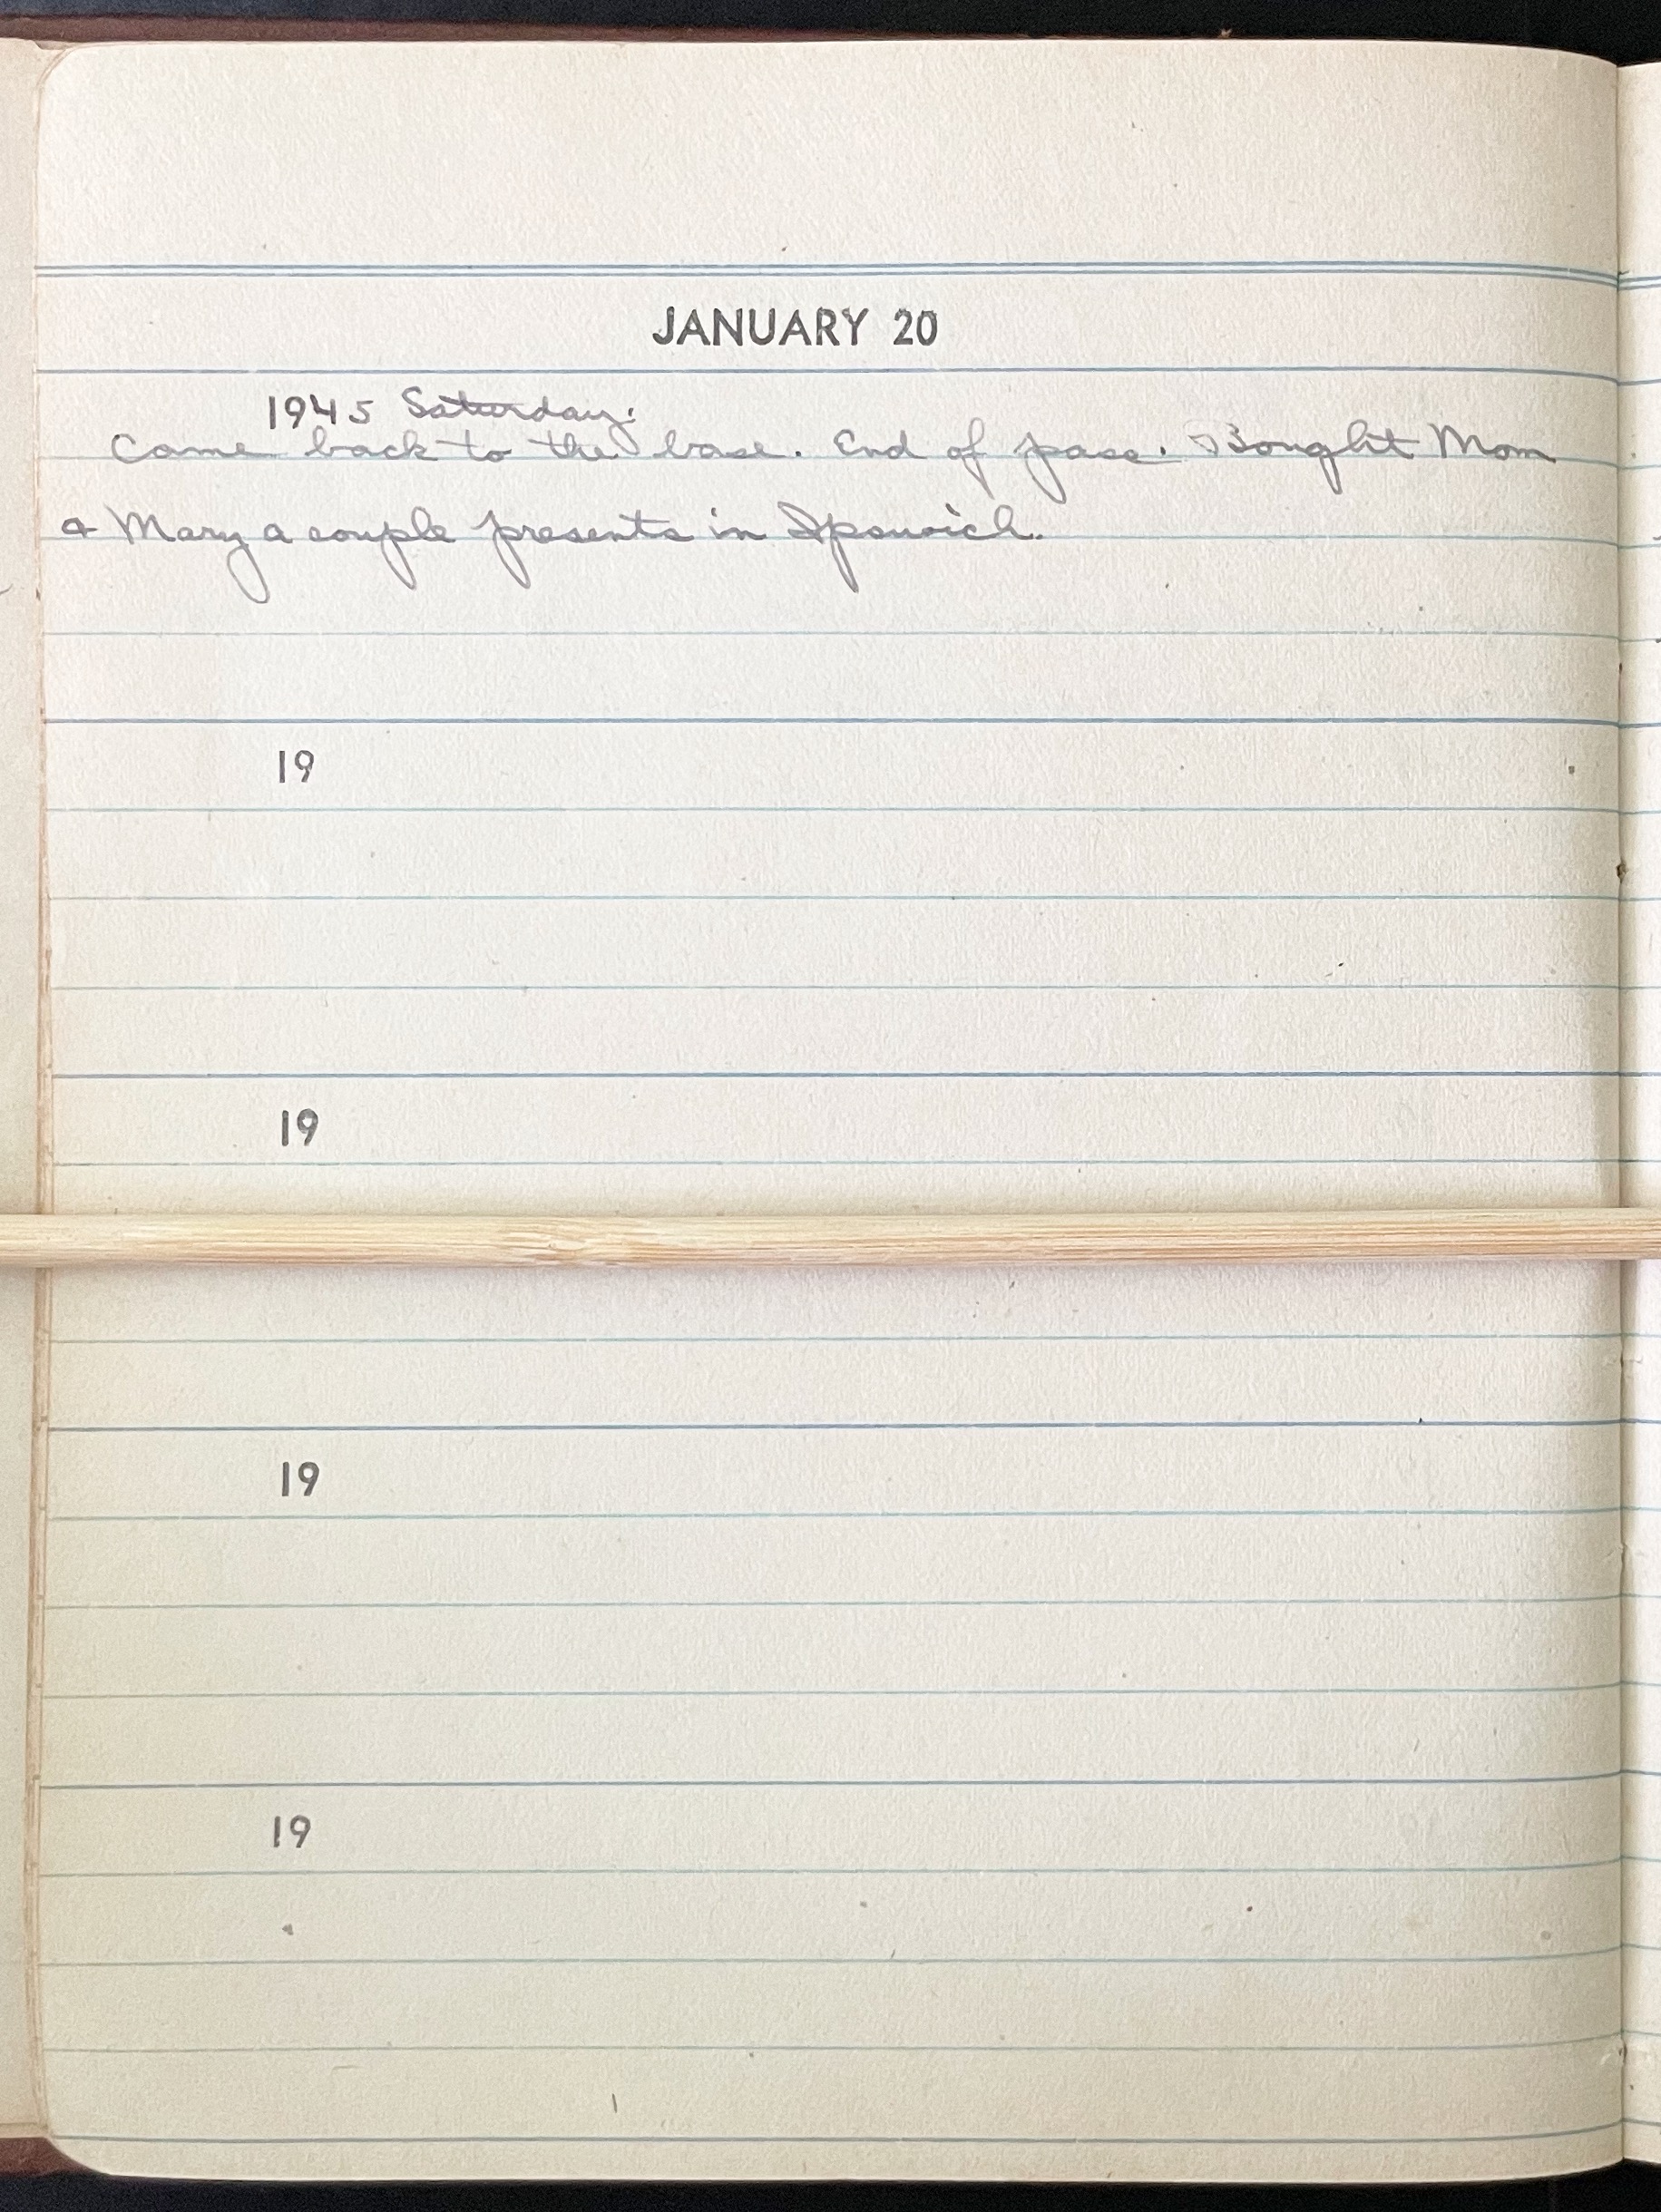 JANUARY 20
1945 Saturday.
Came back to the base. End of pass. Bought Mom
& Mary a couple presents in Ipswich.
19
19
19
19